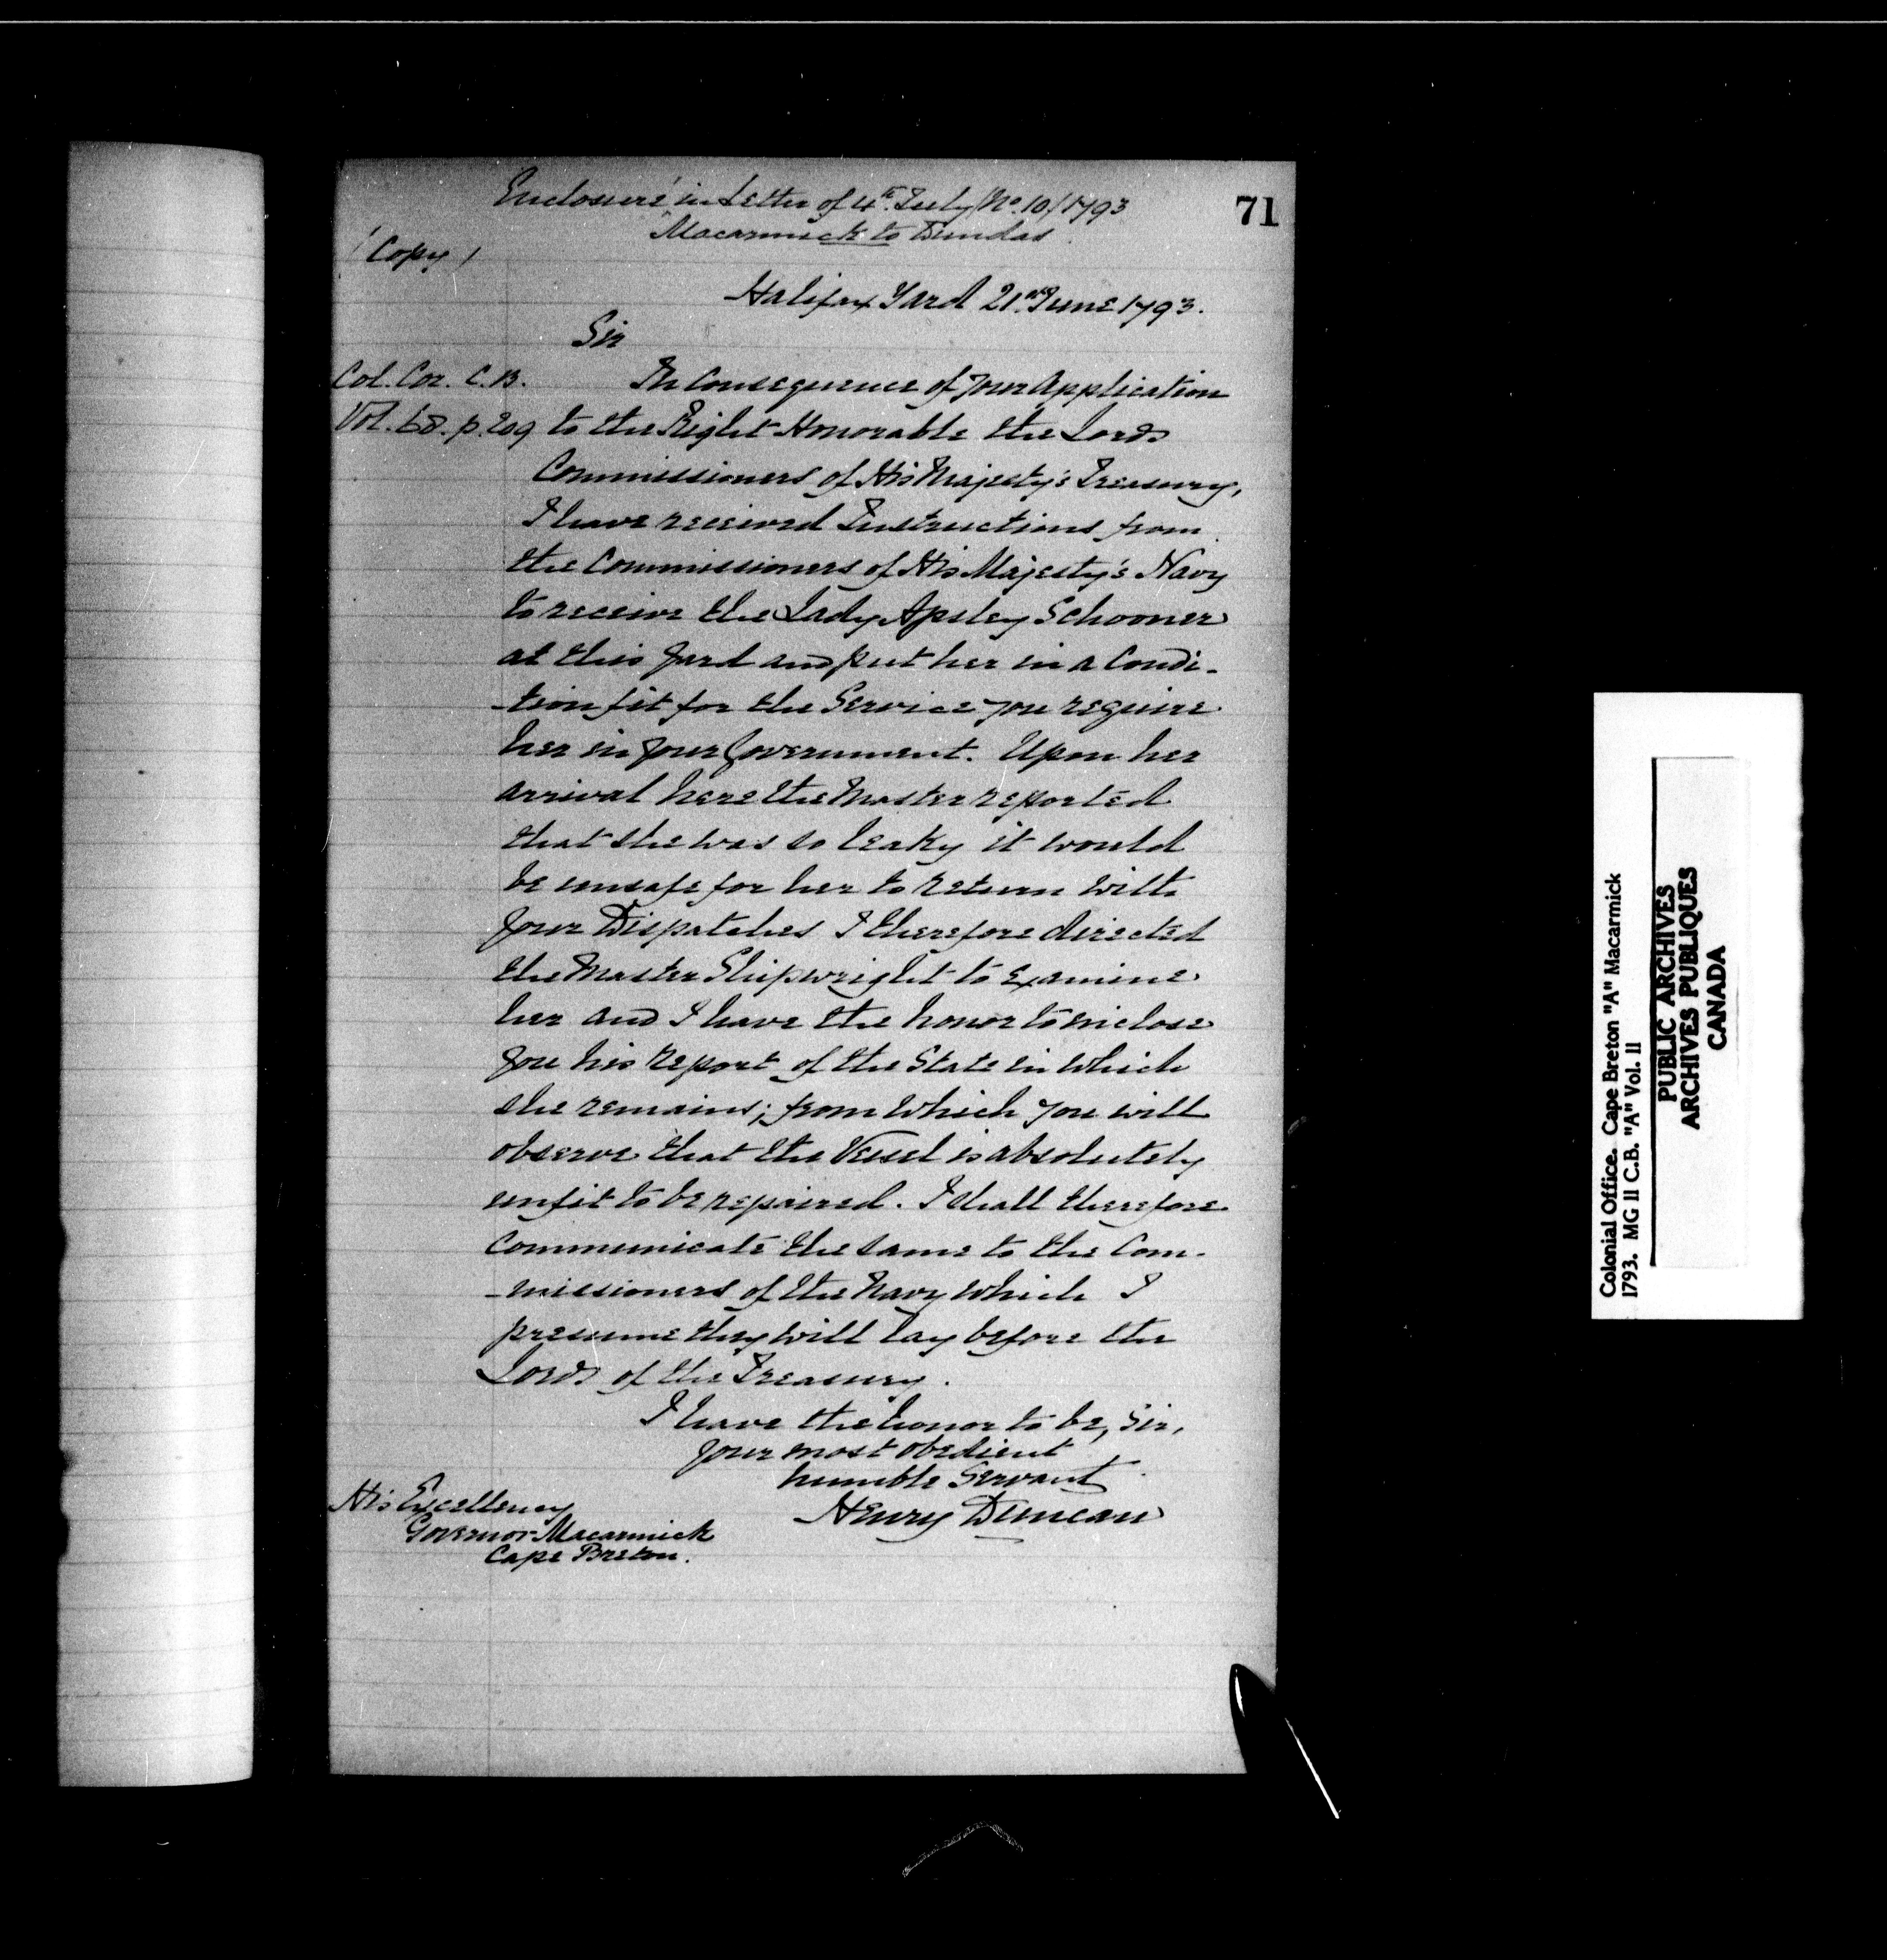 Enclosure in Letter of 4th. July /No. 10/ 1793
Macarmick to Dundas.
71
/Copy/
Halifax Yard 21st June 1793.
Sir
Col. Cor. C.B.
Vol. 68. p. 209
In Consequence of your Application
to the Right Honorable the Lords
Commissioners of His Majesty's Treasury,
I have received Instructions from
the Commissioners of His Majesty's Navy
to receive the Lady Apsley Schooner
at this Yard and put her in a Condi-
-tion fit for the Service you require
her in your Government. Upon her
arrival here the Master reported
that she was so leaky it would
be unsafe for her to return with
your Dispatches I therefore directed
the Master Shipwright to Examine
her and I have the honor to inclose
you his report of the State in which
she remains; from which you will
observe that the Vessel is absolutely
unfit to be repaired. I shall therefore
Communicate the same to the Com-
-missioners of the Navy which I
presume they will lay before the
Lords of the Treasury.
I have the honor to be, Sir,
your most obedient
humble Servant
Henry Duncan
His Excellency
Governor Macarmick
Cape Breton.
Colonial Office. Cape Breton "A" Macarmick
1793. MG 11 C.B. "A" Vol. 11
PUBLIC ARCHIVES
ARCHIVES PUBLIQUES
CANADA